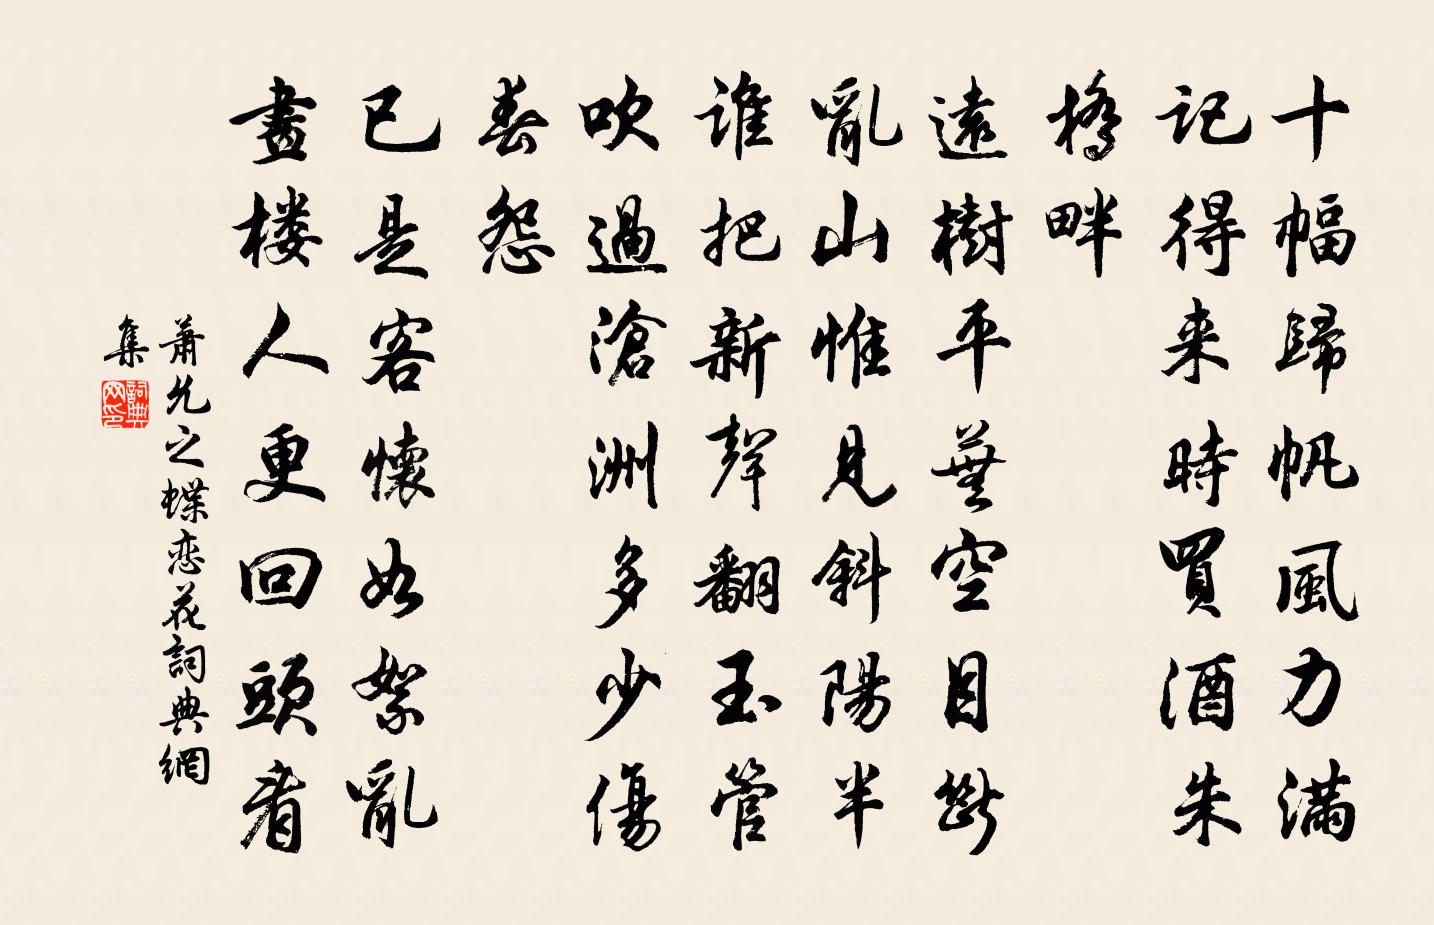 十幅歸帆風力滿
記得来時買酒朱
橋畔
遠樹平蕪空目斷
亂山惟見斜陽半
誰把新聲翻玉管
吹過滄洲多少傷
春怨
已是客懷如絮亂
畫楼人更回頭看
蕭允之蝶恋花詞典網
集
詞典
网印